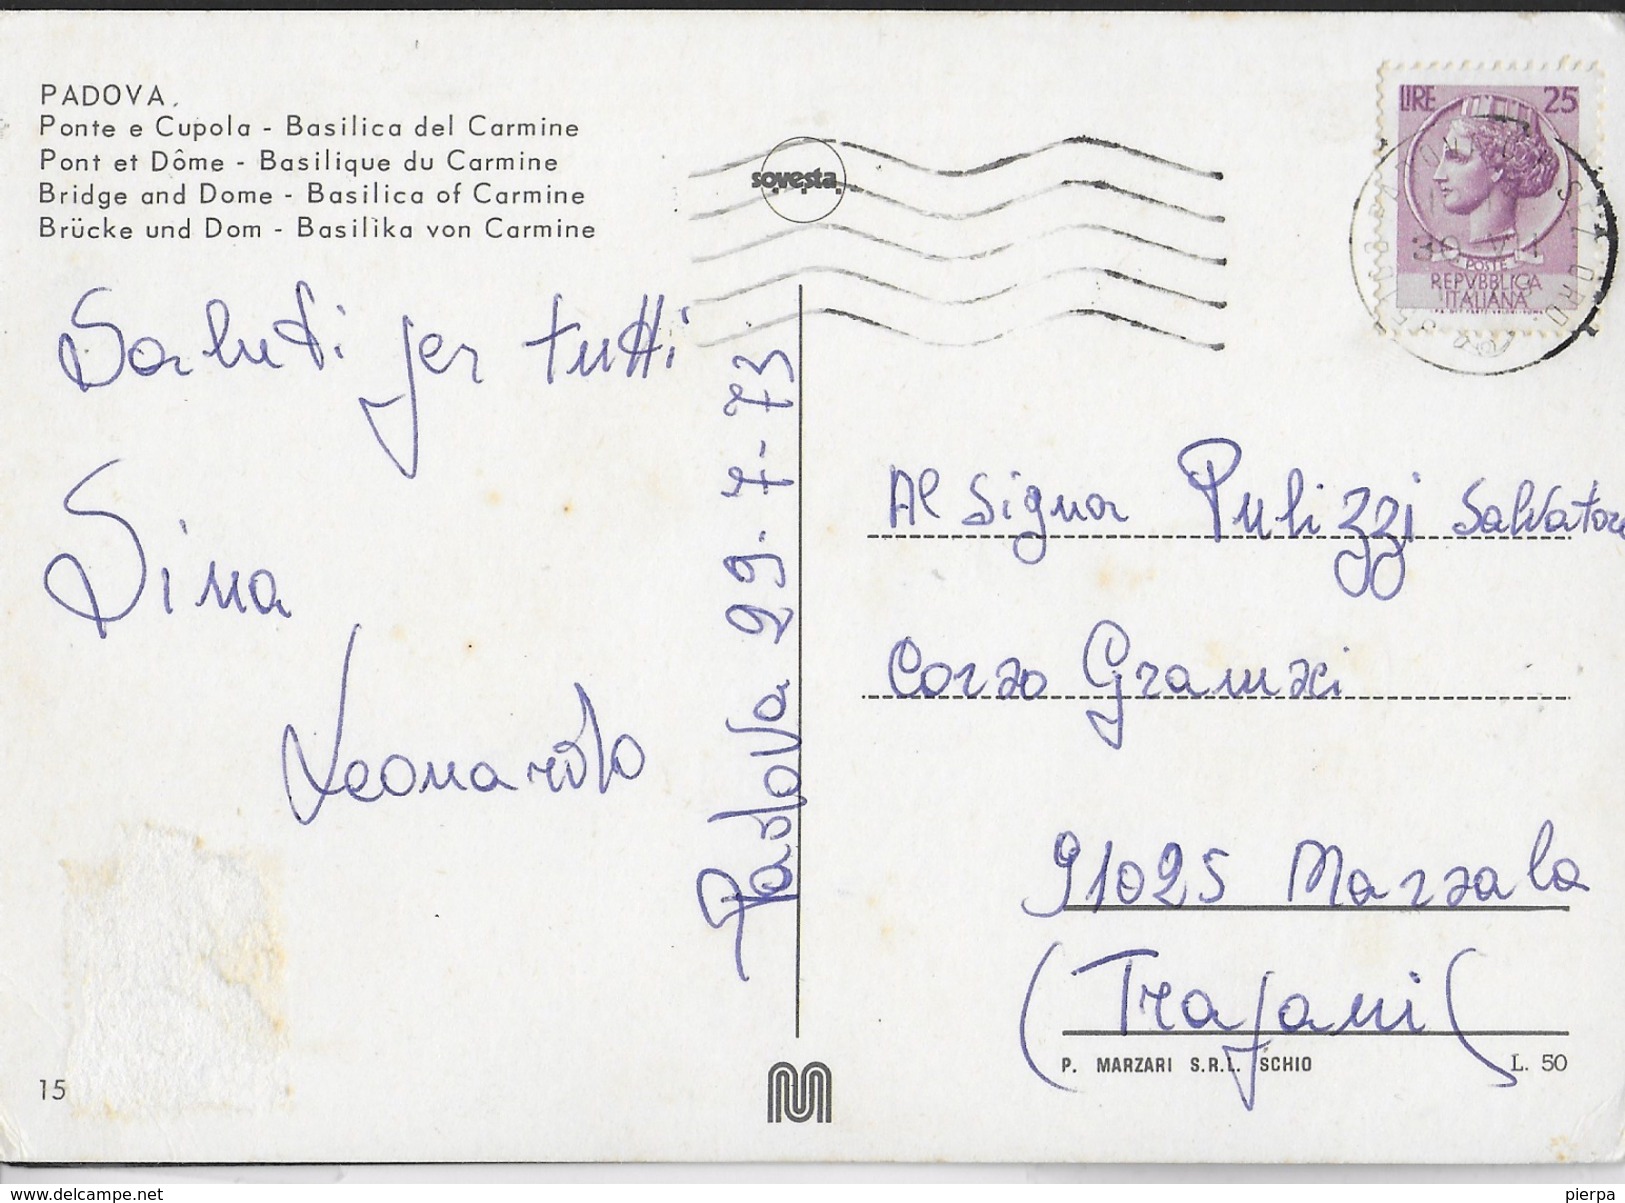 PADOVA.
Ponte e Cupola - Basilica del Carmine
Pont et Dôme - Basilique du Carmine
Bridge and Dome - Basilica of Carmine
Brücke und Dom - Basilika von Carmine
sovesta
LIRE 25
POSTE
REPVBBLICA
ITALIANA
30 VII
Saluti per tutti
Sina
Leonardo
Padova 29-7-73
Al Signor Pulizzi Salvatore
Corso Gramsci
91025 Marsala
(Trapani(
P. MARZARI S.R.L. SCHIO L. 50
15
www.delcampe.net
pierpa